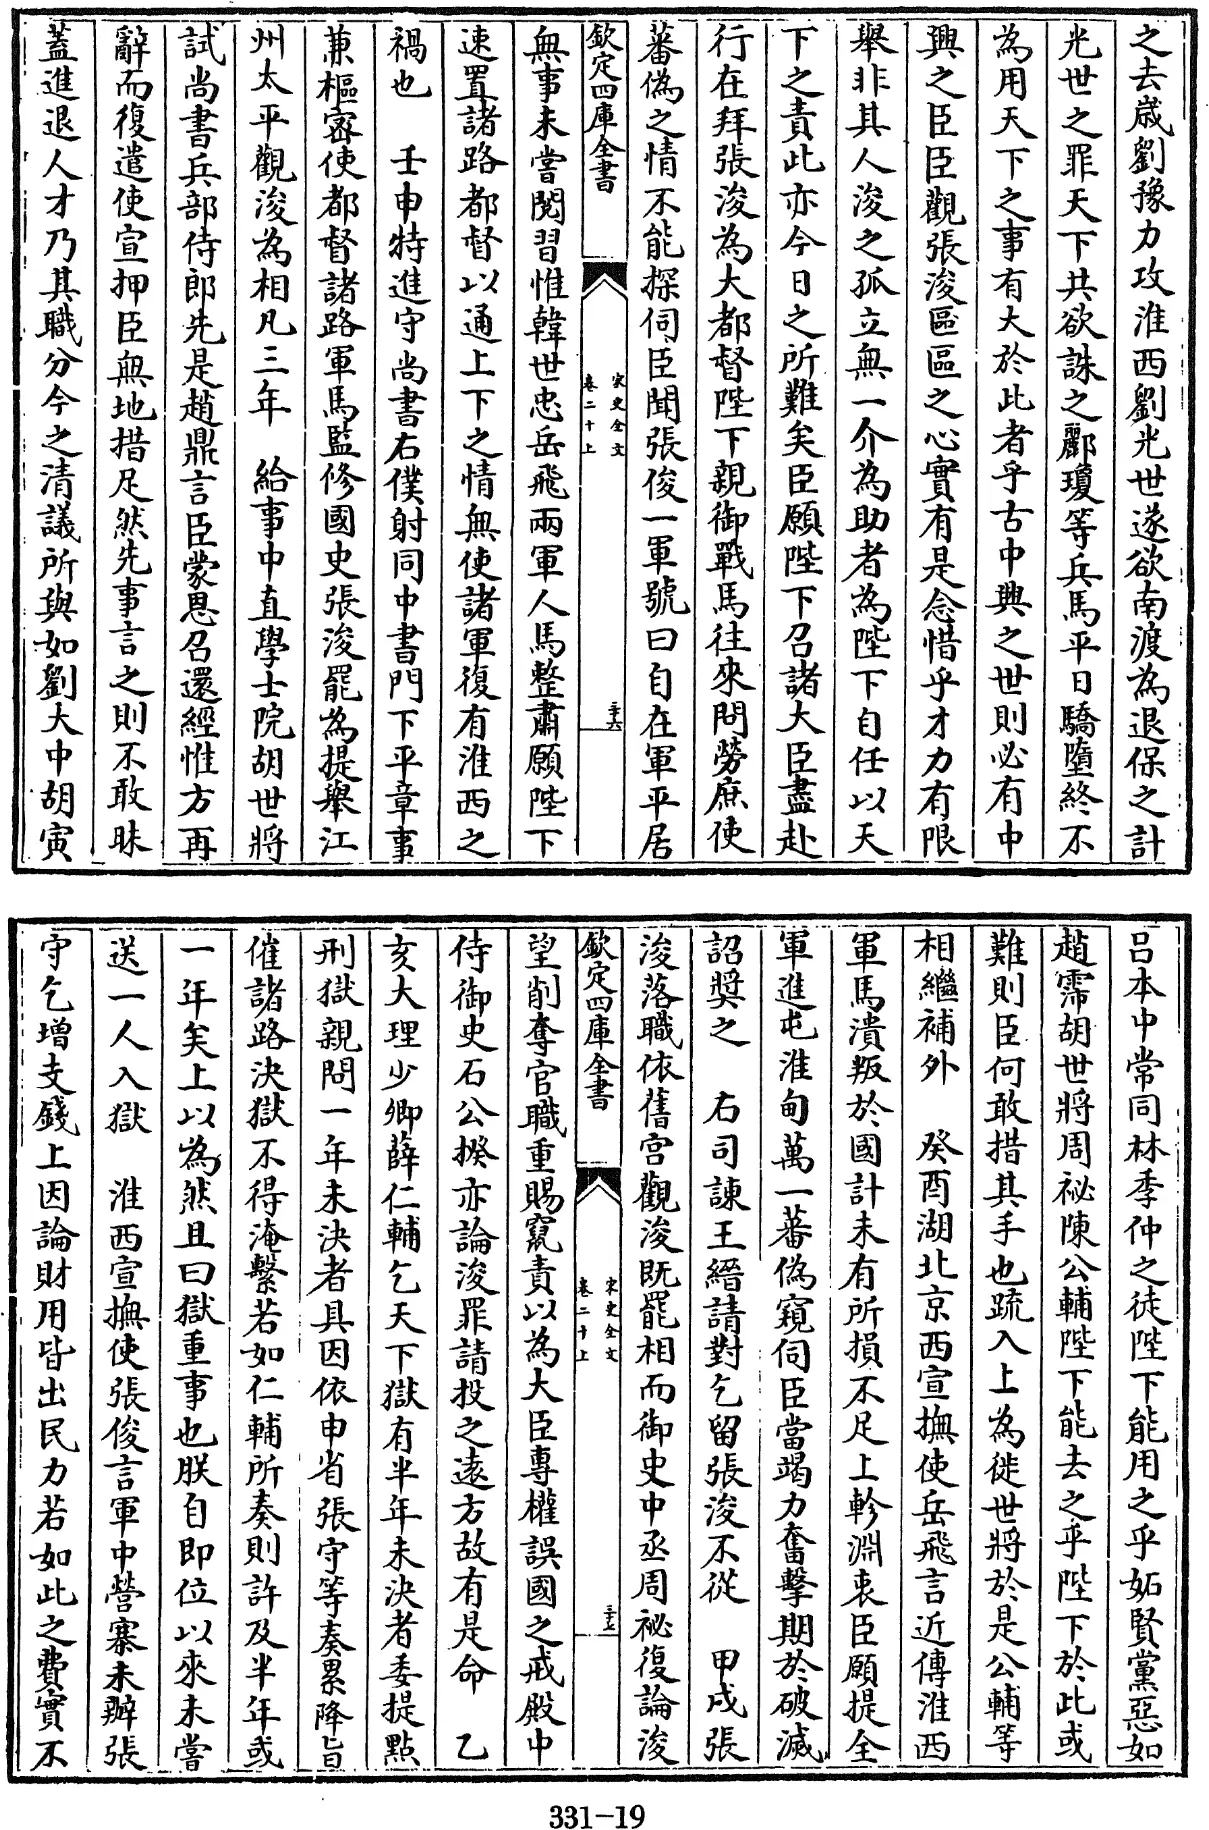 之去歲劉豫力攻淮西劉光世遂欲南渡為退保之計
光世之罪天下共欲誅之酈瓊等兵馬平日驕墮終不
為用天下之事有大於此者乎古中興之世則必有中
興之臣臣觀張浚區區之心實有是念惜乎才力有限
舉非其人浚之孤立無一介為助者為陛下自任以天
下之責此亦今日之所難矣臣願陛下召諸大臣盡赴
行在拜張浚為大都督陛下親御戰馬往來問勞庶使
蕃偽之情不能探伺臣聞張俊一軍號曰自在軍平居
欽定四庫全書
宋史全文
卷二十上
三十六
無事未嘗閱習惟韓世忠岳飛兩軍人馬整肅願陛下
速置諸路都督以通上下之情無使諸軍復有淮西之
禍也 壬申特進守尚書右僕射同中書門下平章事
兼樞密使都督諸路軍馬監修國史張浚罷為提舉江
州太平觀浚為相凡三年 給事中直學士院胡世將
試尚書兵部侍郎先是趙鼎言臣蒙恩召還經惟方再
辭而復遣使宣押臣無地措足然先事言之則不敢昧
蓋進退人才乃其職分今之清議所與如劉大中胡寅
呂本中常同林季仲之徒陛下能用之乎妬賢黨惡如
趙霈胡世將周祕陳公輔陛下能去之乎陛下於此或
難則臣何敢措其手也疏入上為徙世將於是公輔等
相繼補外 癸酉湖北京西宣撫使岳飛言近傳淮西
軍馬潰叛於國計未有所損不足上軫淵衷臣願提全
軍進屯淮甸萬一蕃偽窺伺臣當竭力奮擊期於破滅
詔獎之 右司諫王縉請對乞留張浚不從 甲戌張
浚落職依舊宮觀浚既罷相而御史中丞周祕復論浚
欽定四庫全書
宋史全文
卷二十上
三十七
望削奪官職重賜竄責以為大臣專權誤國之戒殿中
侍御史石公揆亦論浚罪請投之遠方故有是命 乙
亥大理少卿薛仁輔乞天下獄有半年未決者委提點
刑獄親問一年未決者具因依申省張守等奏累降旨
催諸路決獄不得淹繫若如仁輔所奏則許及半年或
一年矣上以為然且曰獄重事也朕自即位以來未嘗
送一人入獄 淮西宣撫使張俊言軍中營寨未辦張
守乞增支錢上因論財用皆出民力若如此之費實不
331-19